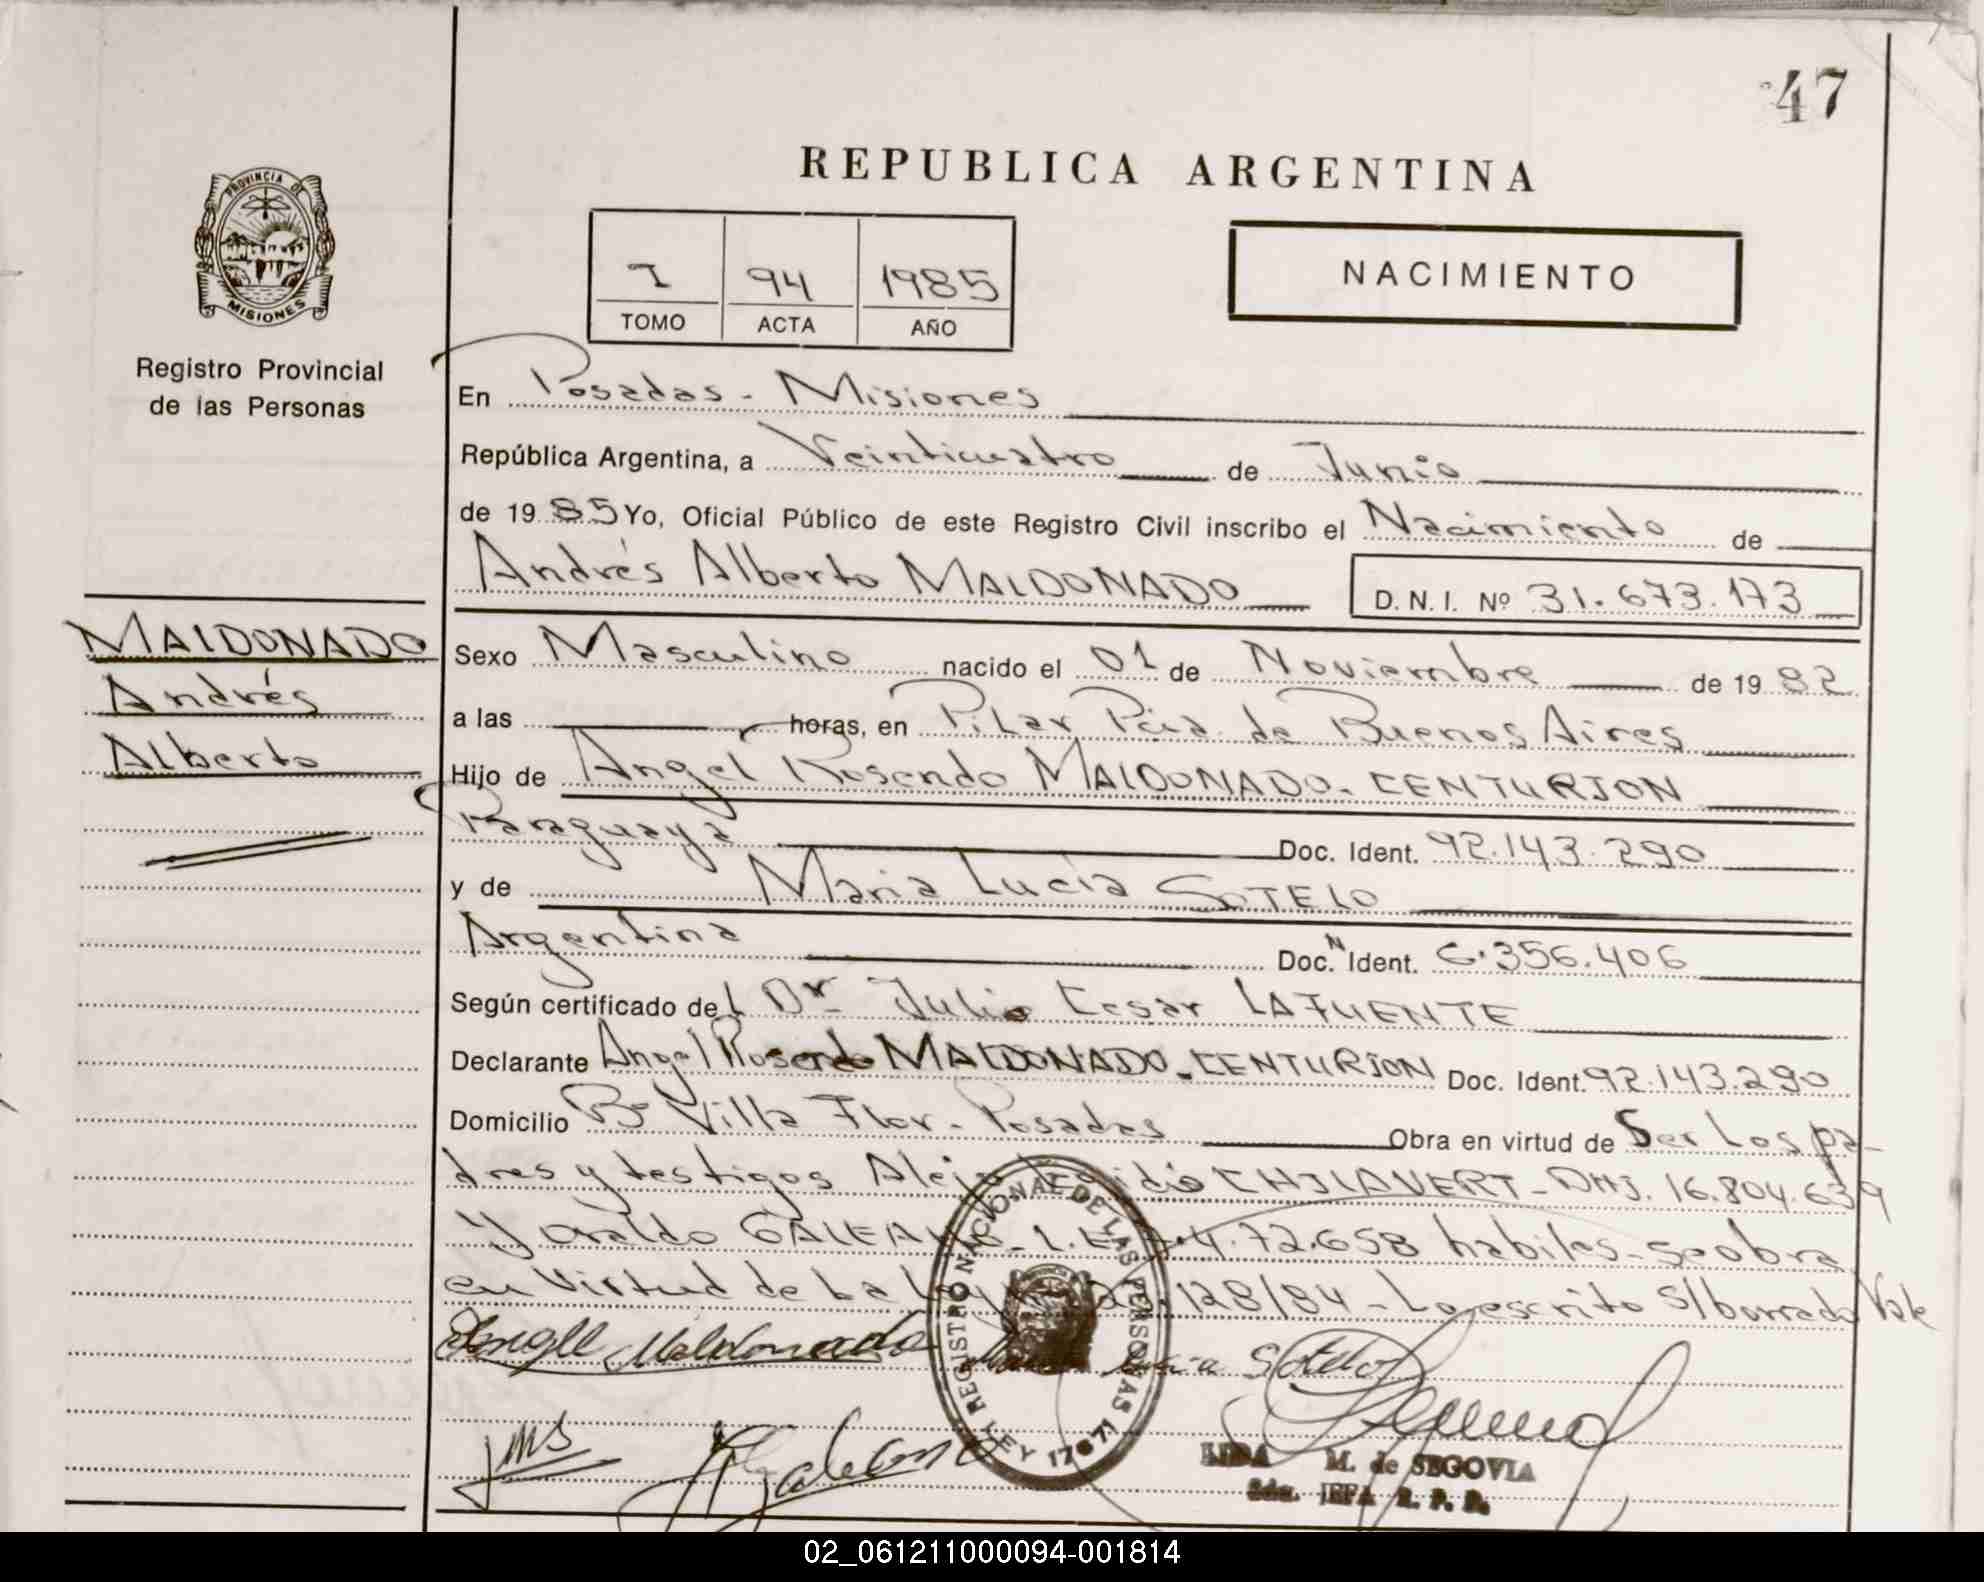 47
PROVINCIA DE
MISIONES
Registro Provincial
de las Personas
REPUBLICA ARGENTINA
I 94 1985
TOMO ACTA AÑO
NACIMIENTO
En Posadas - Misiones
República Argentina, a Veinticuatro de Junio
de 1985 Yo, Oficial Público de este Registro Civil inscribo el Nacimiento de
Andrés Alberto MALDONADO D.N.I. Nº 31.673.173
MALDONADO
Andrés
Alberto
Sexo Masculino nacido el 01 de Noviembre de 1982
a las horas, en Pilar Pcia de Buenos Aires
Hijo de Angel Rosendo MALDONADO - CENTURION
Paraguaya Doc. Ident. 92.143.290
y de Maria Lucia SOTELO
Argentina Doc. N Ident. 6.356.406
Según certificado del Dr Julio Cesar LAFUENTE
Declarante Angel Rosendo MALDONADO - CENTURION Doc. Ident. 92.143.290
Domicilio Bº Villa Flor - Posadas Obra en virtud de Ser los pa-
dres y testigos CHILAVERT - DNI. 16.804.639
y GALEANO - L.E. 72.658 habiles - se obra
en Virtud de La Ley 128/84 - Lo escrito s/borrado Vale
Angel Maldonado Lucia Sotelo
REGISTRO NACIONAL DE LAS PERSONAS
LEY 17671
Galeano
M. de SEGOVIA
JEFA R. P. P.
02_061211000094-001814